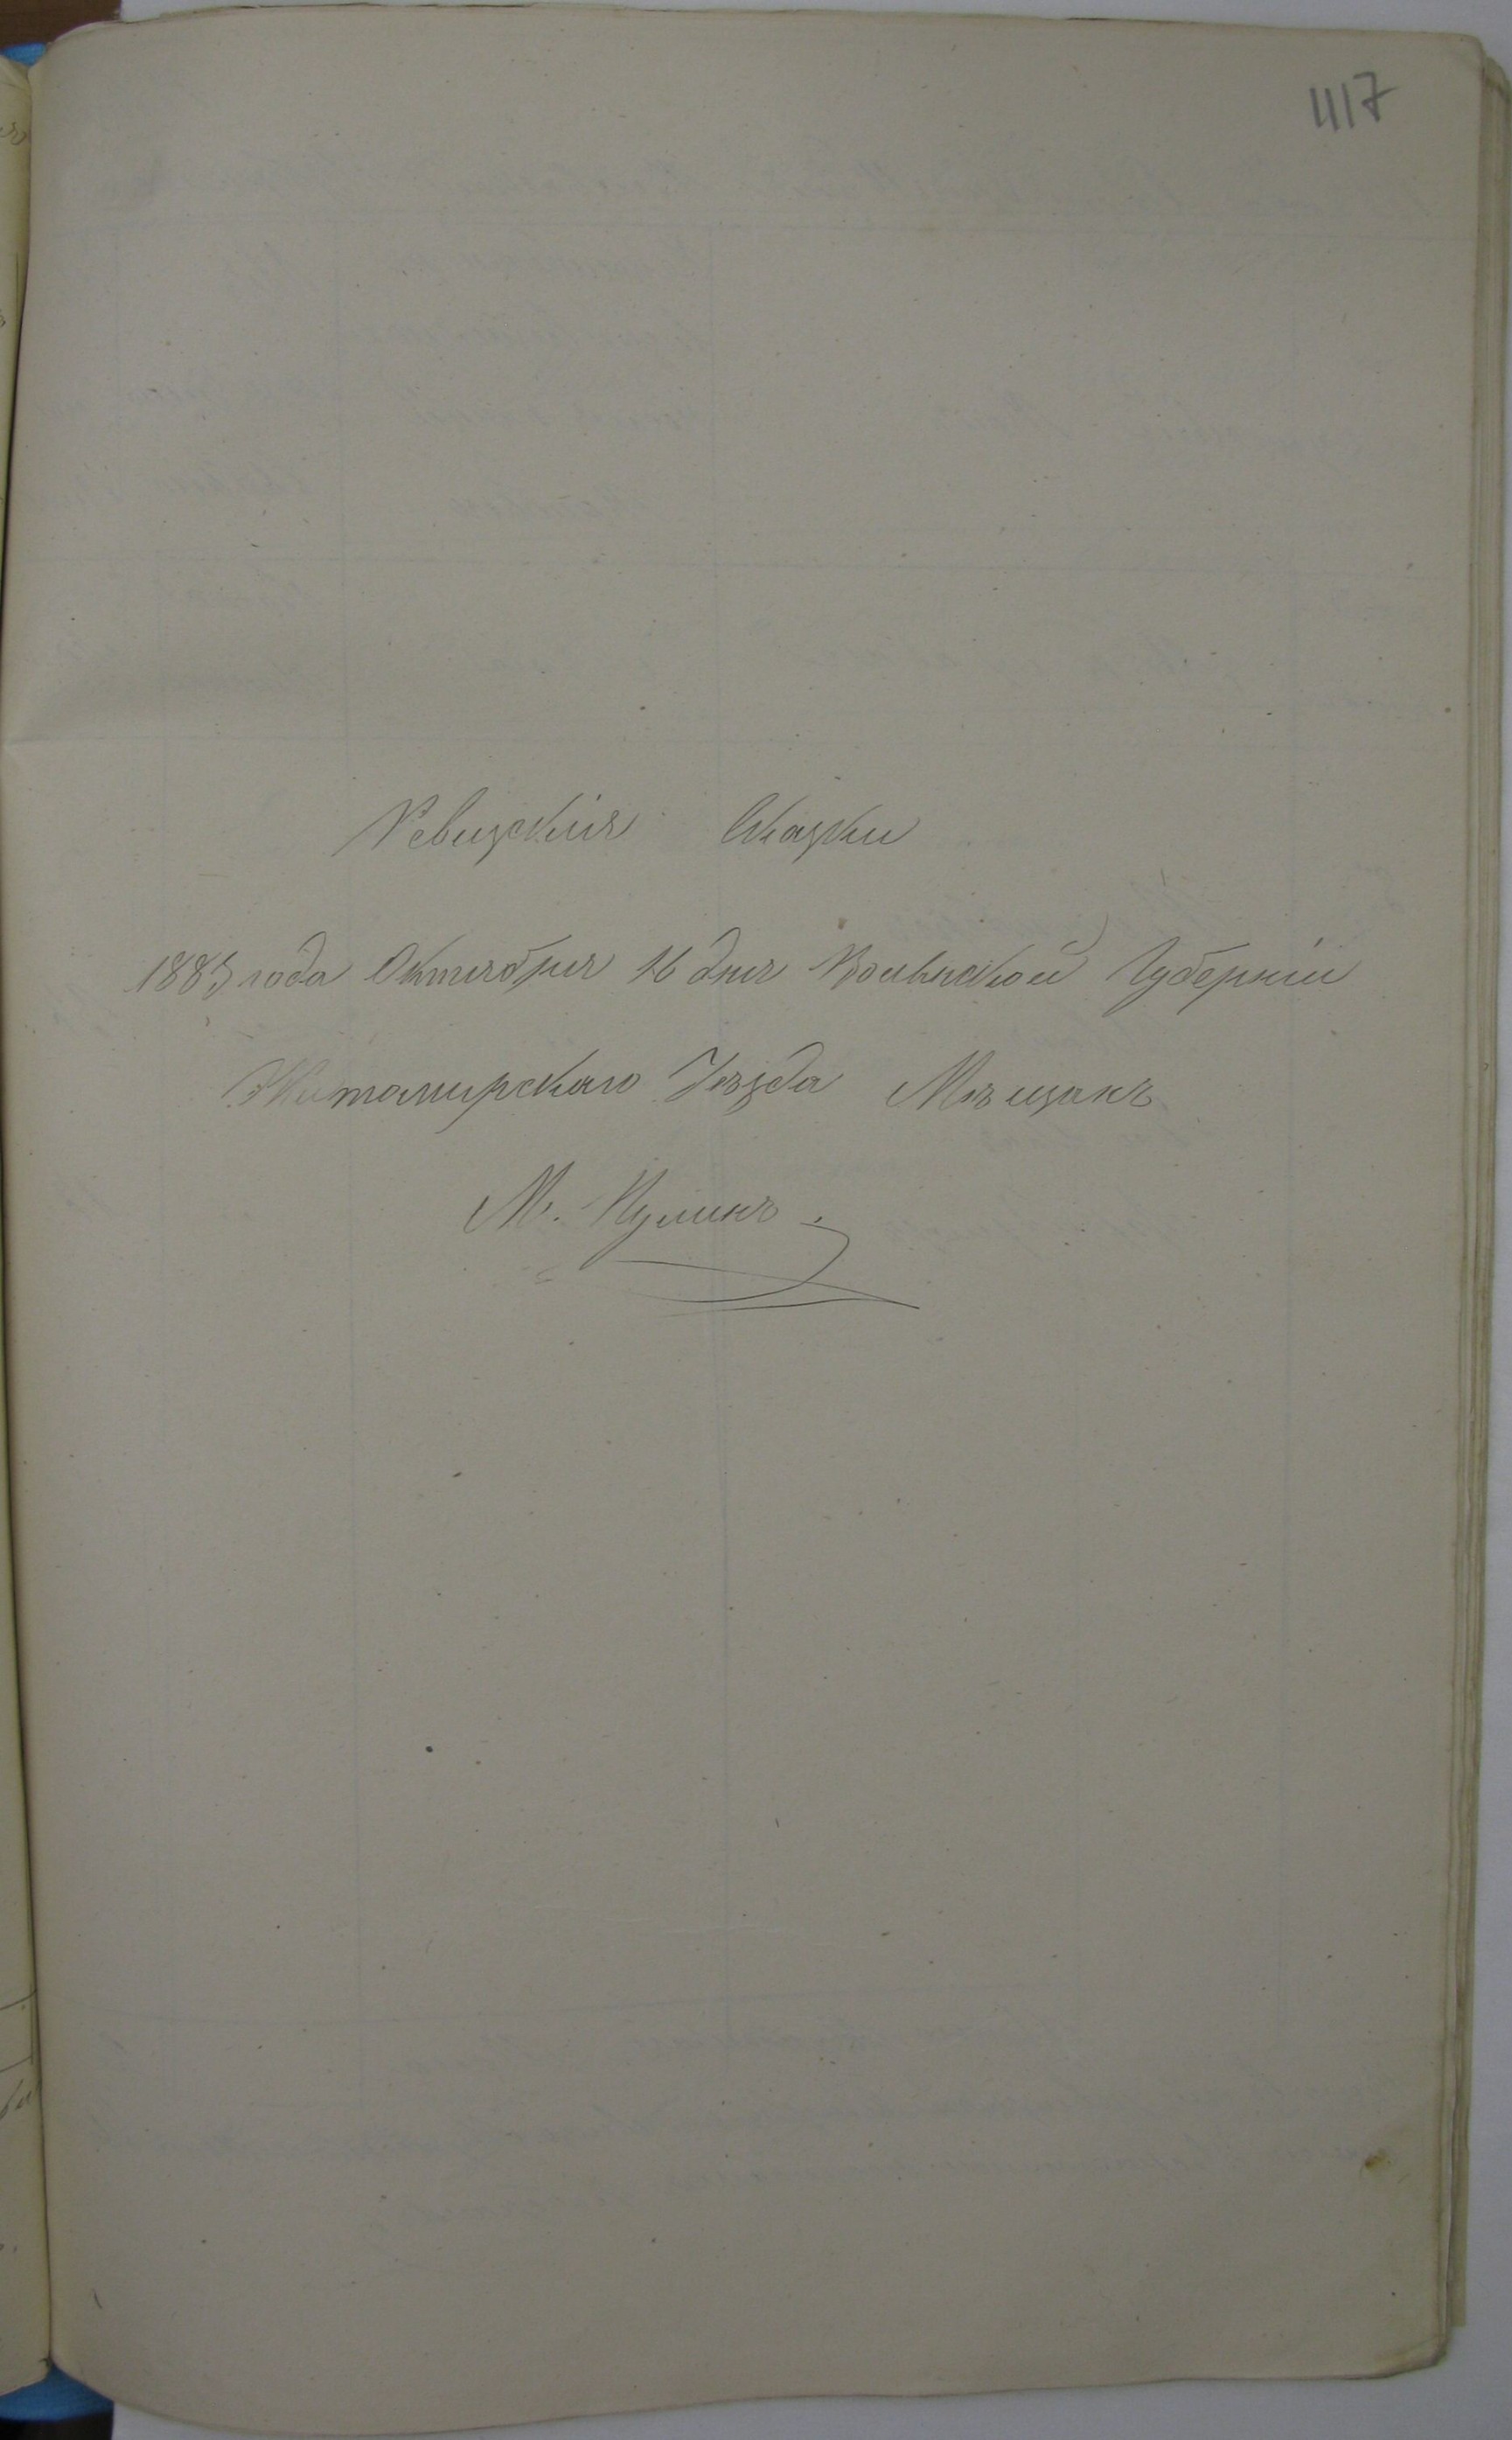 417
Ревизскія Сказки
1883 года Октября 16 дня Волынской Губерніи
Житомирскаго Уезда Мѣщанъ
М. Пулинъ.